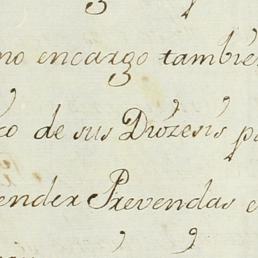 no encargo tambié
co de sus Diózesis p
ender Prevendas e